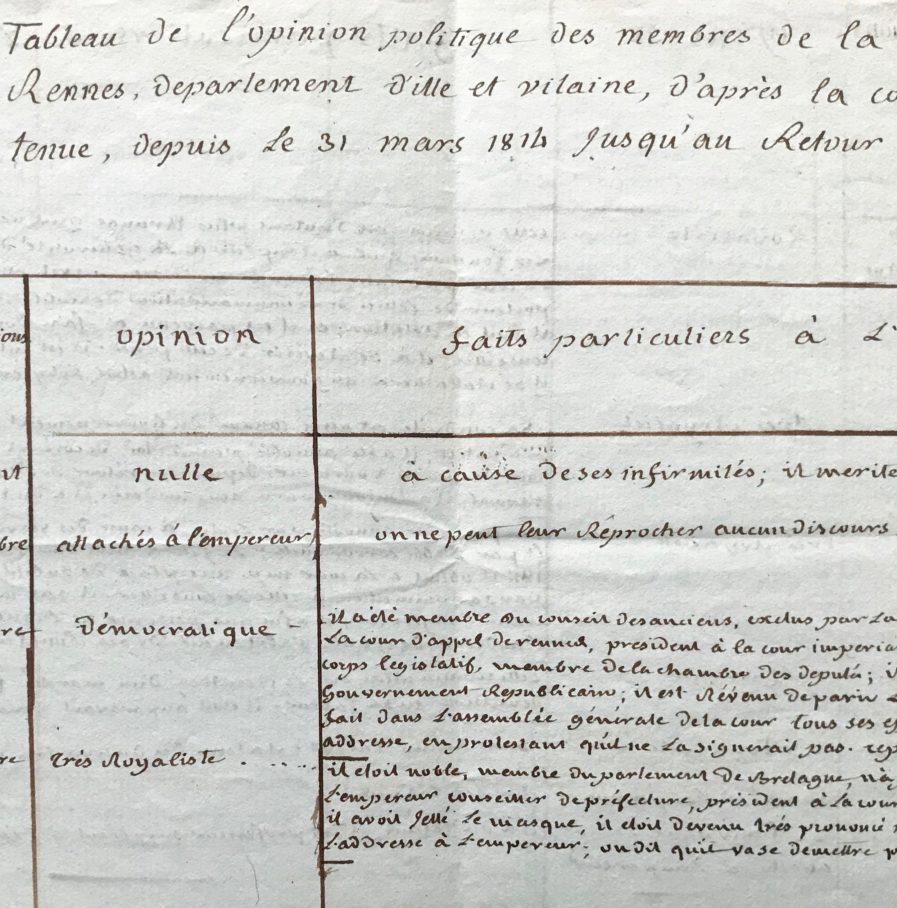 Tableau de l'opinion politique des membres de la
Rennes, departement d'ille et vilaine, d'après la co
tenue, depuis Le 31 mars 1814 Jusqu'au Retour
ions opinion faits particuliers à L'
nt nulle à cause de ses infirmités; il merite
bre attachés á l'empereur on ne peut leur Réprocher aucun discours
re Démocratique il a été membre du conseil des anciens, exclus par La
La cour d'appel de rennes, president à la cour imperia
corps legislatif, membre de la chambre des deputé; i
Gouvernement Republicain; il est Révenu de paris
fait dans L'assemblée générale de la cour tous ses e
addresse, en protestant qu'il ne La signerait pas. rep
re très Royaliste . . . . . il etoit noble, membre du parlement de Bretagne, n'a
L'empereur conseiller de préfecture, président à La cour
il avoit Jetté Le masque, il etoit devenu très prononcé
L'addresse à L'empereur; on dit qu'il va se demettre p